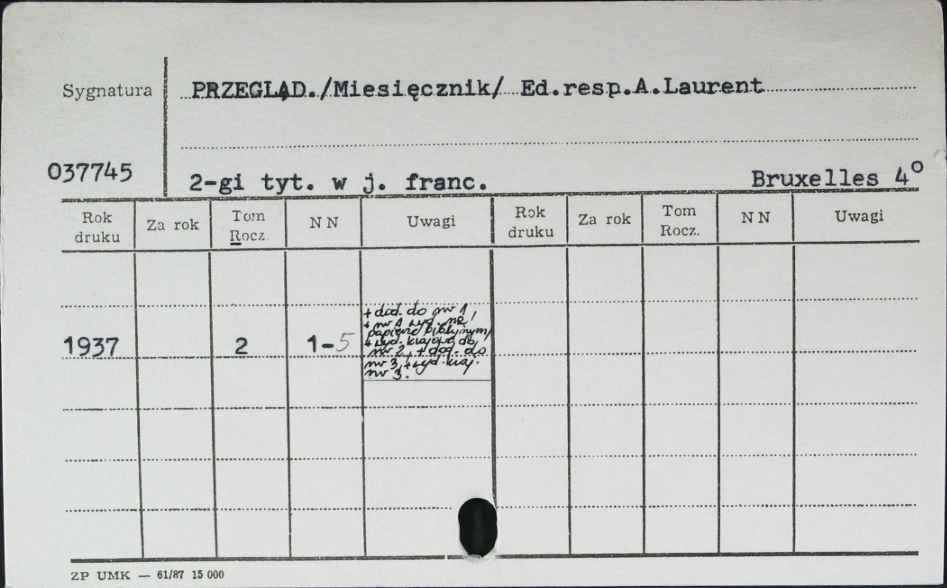 Sygnatura
PRZEGLĄD./Miesięcznik/ Ed.resp.A.Laurent
037745
2-gi tyt. w j. franc.
Bruxelles 4º
Rok druku
Za rok
Tom Rocz.
NN
Uwagi
Rok druku
Za rok
Tom Rocz.
NN
Uwagi
1937
2
1-5
+ dod. do nr 1,
+ nr 1 wyd. na
papierze białynym,
+ wyd. krajowe do
nr 2, + dod. do
nr 3, + wyd. kraj.
nr 3.
ZP UMK — 61/87 15 000